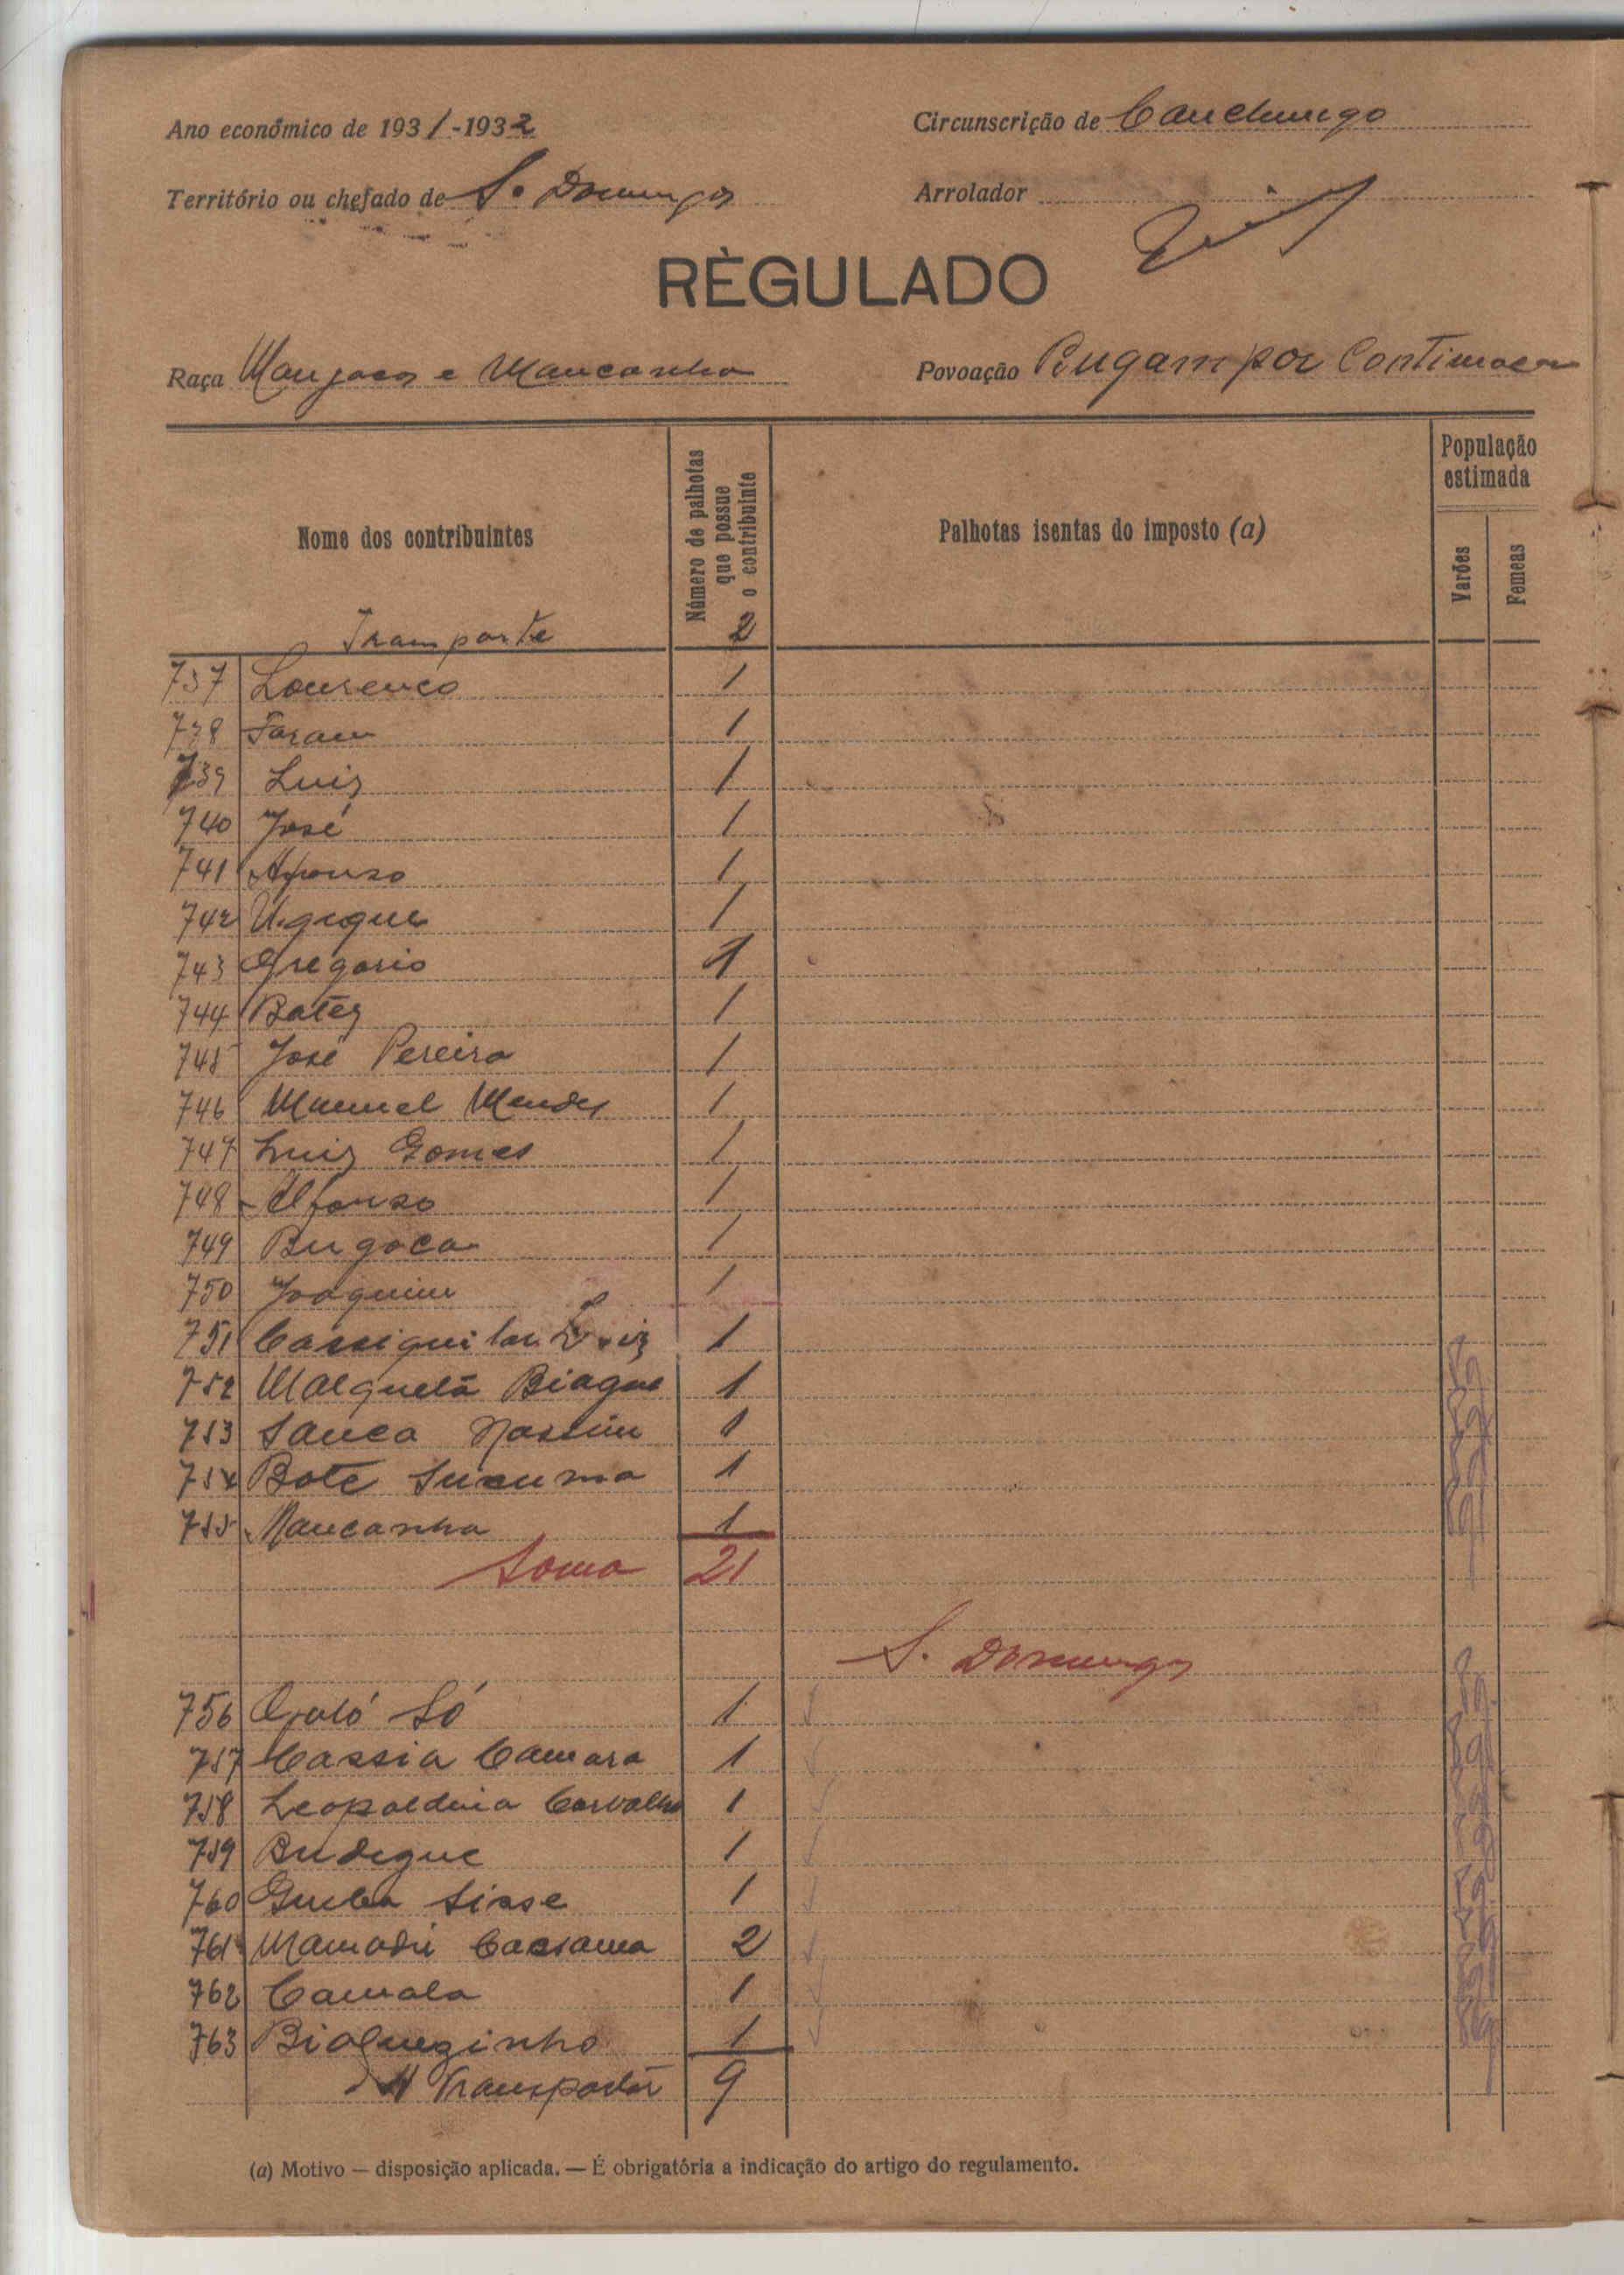 Ano económico de 1931-1932
Circunscrição de Canchungo
Território ou chefado de S. Domingos
Arrolador
RÈGULADO
Raça Manjacos e Mancanha
Povoação Bugampor Continuação
Nome dos contribuintes
Número de palhotas que possue o contribuinte
Palhotas isentas do imposto (a)
População estimada
Varões
Femeas
Transporte 2
737 Lourenco 1
738 Faram 1
739 Luiz 1
740 José 1
741 Afonso 1
742 1
743 Gregorio 1
744 Batez 1
745 José Pereira 1
746 Manuel Mendes 1
747 Luiz Gomes 1
748 Alfonso 1
749 Bugoca 1
750 Joaquim 1
751 1
752 Malquetà Biague 1
753 Sanca Nassim 1
754 Bote 1
755 Mancanha 1
Soma 21
S. Domingos
756 Só 1
757 Cassia Camara 1
758 Leopoldina Carvalho 1
759 Budegue 1
760 Sisse 1
761 Mamadú Cassama 2
762 Camala 1
763 1
A Transportar 9
(a) Motivo — disposição aplicada. — É obrigatória a indicação do artigo do regulamento.